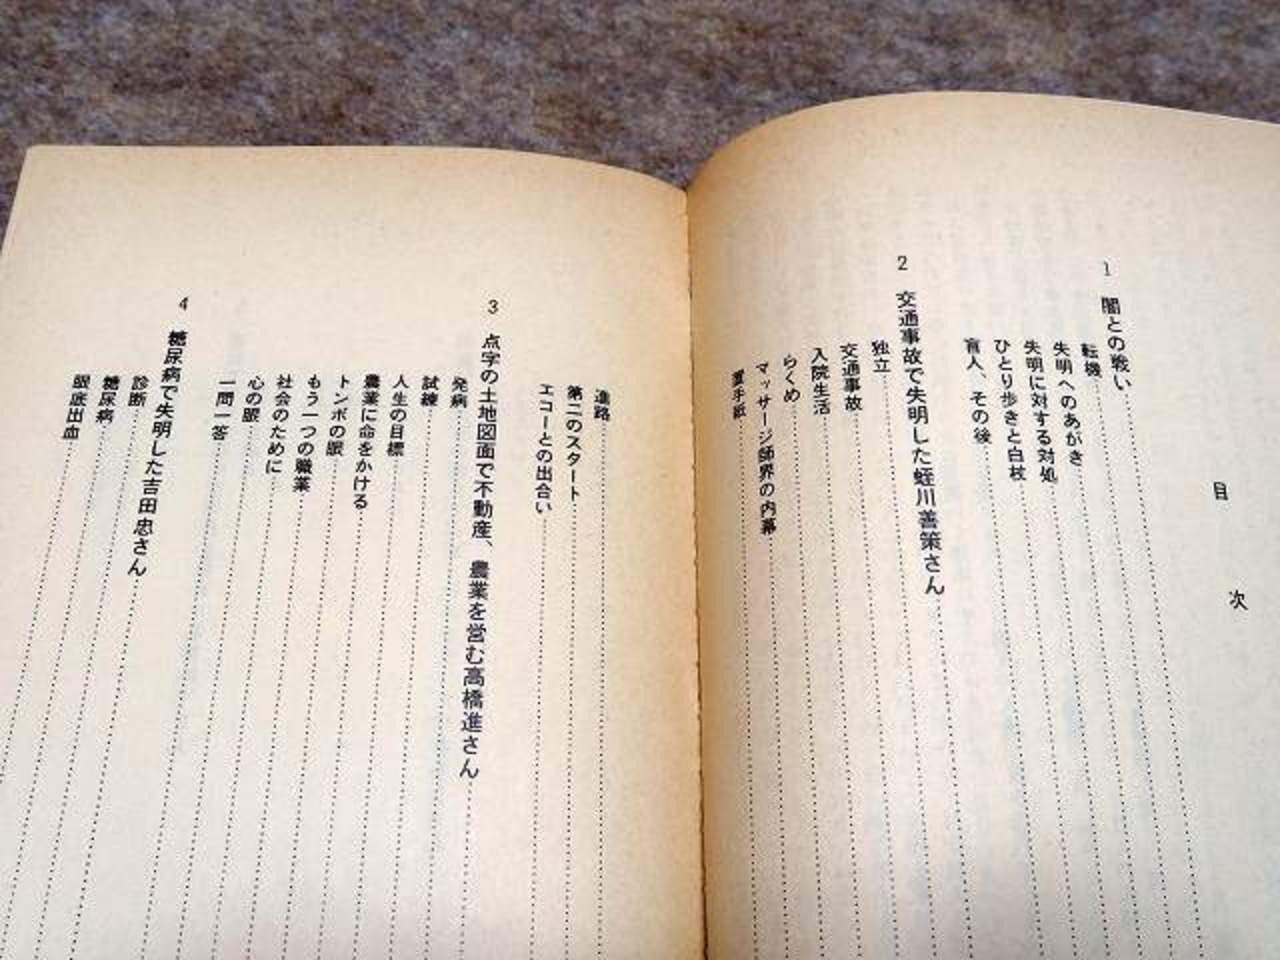 目次
1 闇との戦い
転機
失明へのあがき
失明に対する対処
ひとり歩きと白杖
盲人、その後
2 交通事故で失明した蛭川善策さん
独立
交通事故
入院生活
らくめ
マッサージ師界の内幕
置手紙
進路
第二のスタート
エコーとの出合い
3 点字の土地図面で不動産、農業を営む高橋進さん
発病
試練
人生の目標
農業に命をかける
トンボの眼
もう一つの職業
社会のために
心の眼
一問一答
4 糖尿病で失明した吉田忠さん
診断
糖尿病
眼底出血